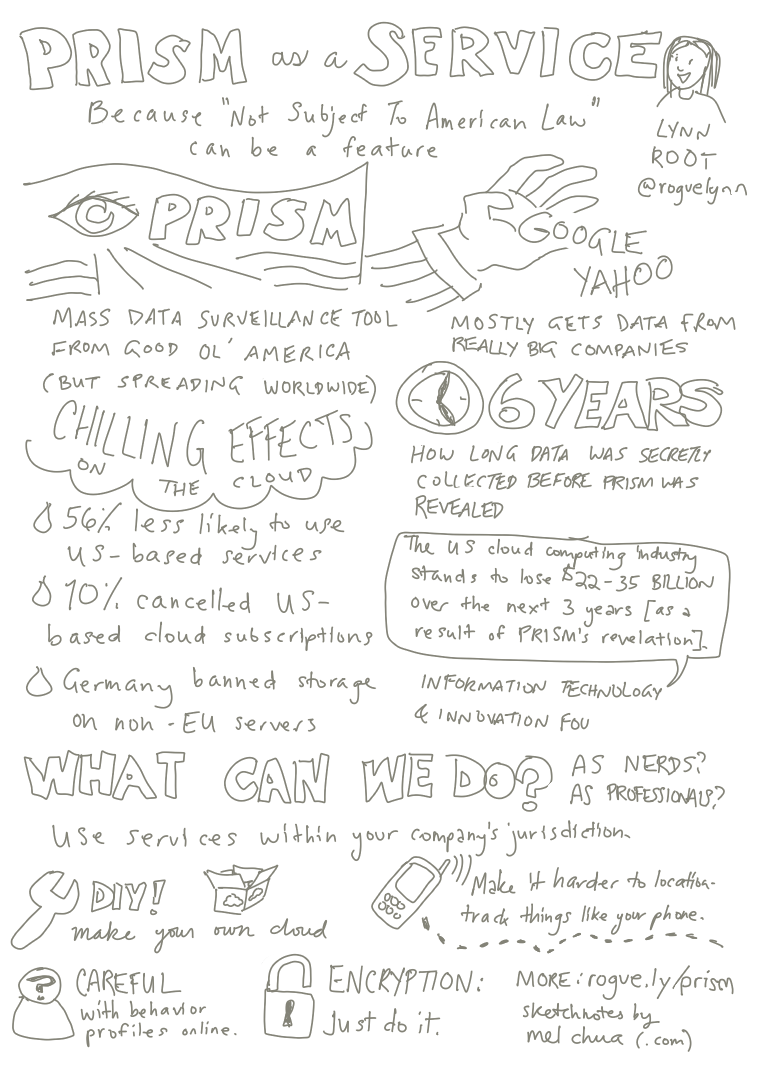 PRISM as a SERVICE
Because "Not Subject To American Law"
can be a feature
LYNN
ROOT
@roguelynn
PRISM
MASS DATA SURVEILLANCE TOOL
FROM GOOD OL' AMERICA
(BUT SPREADING WORLDWIDE)
GOOGLE
YAHOO
MOSTLY GETS DATA FROM
REALLY BIG COMPANIES
6 YEARS
HOW LONG DATA WAS SECRETLY
COLLECTED BEFORE PRISM WAS
REVEALED
CHILLING EFFECTS
ON THE CLOUD
56% less likely to use
US-based services
10% cancelled US-
based cloud subscriptions
Germany banned storage
on non-EU servers
The US cloud computing industry
stands to lose $22-35 BILLION
over the next 3 years [as a
result of PRISM's revelation].
INFORMATION TECHNOLOGY
& INNOVATION FOU
WHAT CAN WE DO?
AS NERDS?
AS PROFESSIONALS?
Use services within your company's jurisdiction.
DIY!
make your own cloud
Make it harder to location-
track things like your phone.
?
CAREFUL
with behavior
profiles online.
ENCRYPTION:
Just do it.
MORE: rogue.ly/prism
sketchnotes by
mel chua (.com)